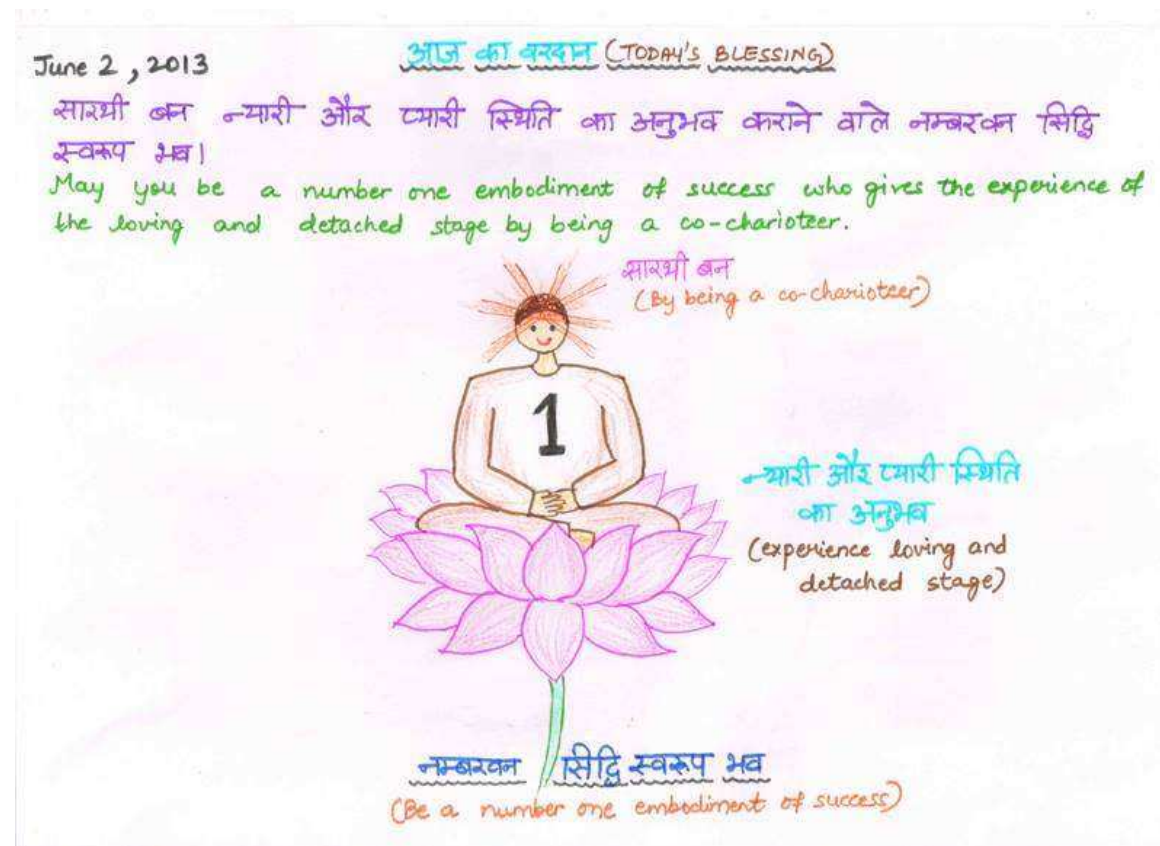 June 2, 2013
आज का वरदान (TODAY'S BLESSING)
सारथी बन न्यारी और प्यारी स्थिति का अनुभव कराने वाले नम्बरवन सिद्धि
स्वरूप भव।
May you be a number one embodiment of success who gives the experience of
the loving and detached stage by being a co-charioteer.
सारथी बन
(By being a co-charioteer)
1
न्यारी और प्यारी स्थिति
का अनुभव
(experience loving and
detached stage)
नम्बरवन सिद्धि स्वरूप भव
(Be a number one embodiment of success)